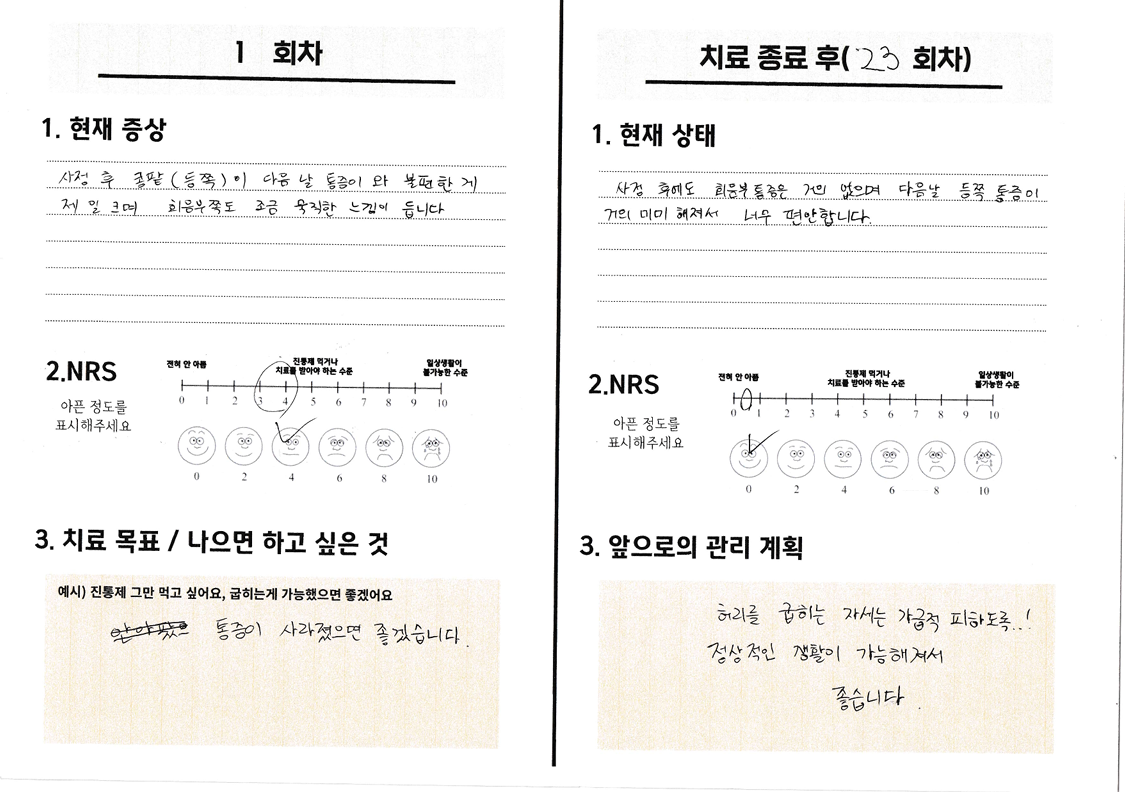 1 회차
1. 현재 증상
사정 후 콩팥(등쪽)이 다음 날 통증이 와 불편한 게
제일 크며 회음부쪽도 조금 묵직한 느낌이 듭니다
2.NRS
아픈 정도를
표시해주세요
전혀 안 아픔
진통제 먹거나
치료를 받아야 하는 수준
일상생활이
불가능한 수준
0 1 2 3 4 5 6 7 8 9 10
0 2 4 6 8 10
3. 치료 목표 / 나으면 하고 싶은 것
예시) 진통제 그만 먹고 싶어요, 굽히는게 가능했으면 좋겠어요
통증이 사라졌으면 좋겠습니다.
치료 종료 후( 23 회차)
1. 현재 상태
사정 후에도 회음부 통증은 거의 없으며 다음날 등쪽 통증이
거의 미미 해져서 너무 편안합니다.
2.NRS
아픈 정도를
표시해주세요
전혀 안 아픔
진통제 먹거나
치료를 받아야 하는 수준
일상생활이
불가능한 수준
0 1 2 3 4 5 6 7 8 9 10
0 2 4 6 8 10
3. 앞으로의 관리 계획
허리를 굽히는 자세는 가급적 피하도록..!
정상적인 생활이 가능해져서
좋습니다.